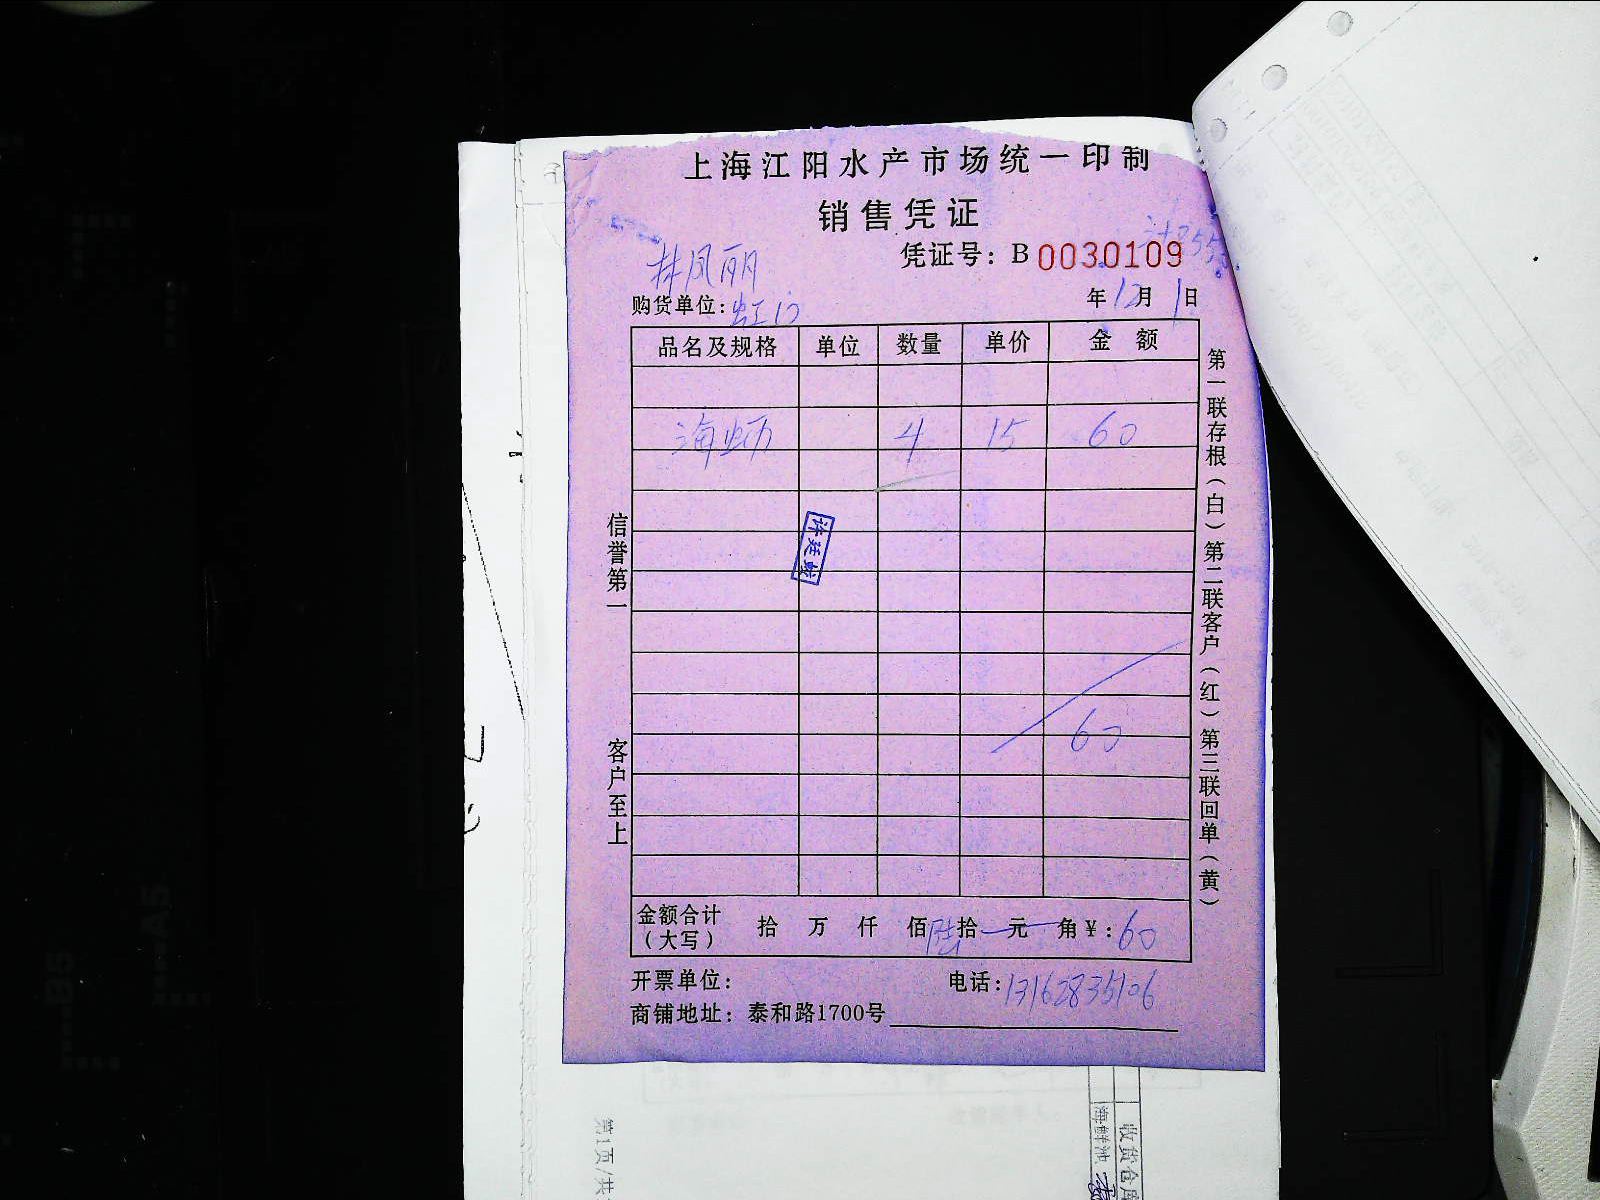 上海江阳水产市场统一印制
销售凭证
凭证号：B 0030109
林凤丽
购货单位：虹门
年12月1日
品名及规格 单位 数量 单价 金额
海蛎 4 15 60
许廷
60
金额合计（大写） 拾 万 仟 佰 陆 拾 元 角 ¥：60
开票单位：
电话：13162835106
商铺地址：泰和路1700号
信誉第一
客户至上
第一联存根（白）第二联客户（红）第三联回单（黄）
第1页/共
收货仓库
海鲜池